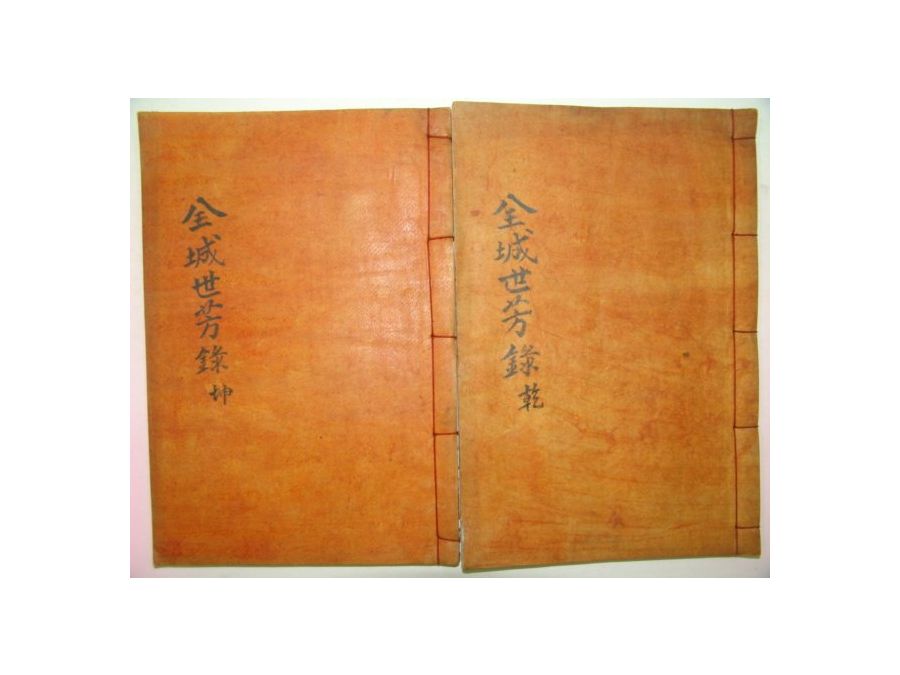 全城世芳錄 乾
全城世芳錄 坤